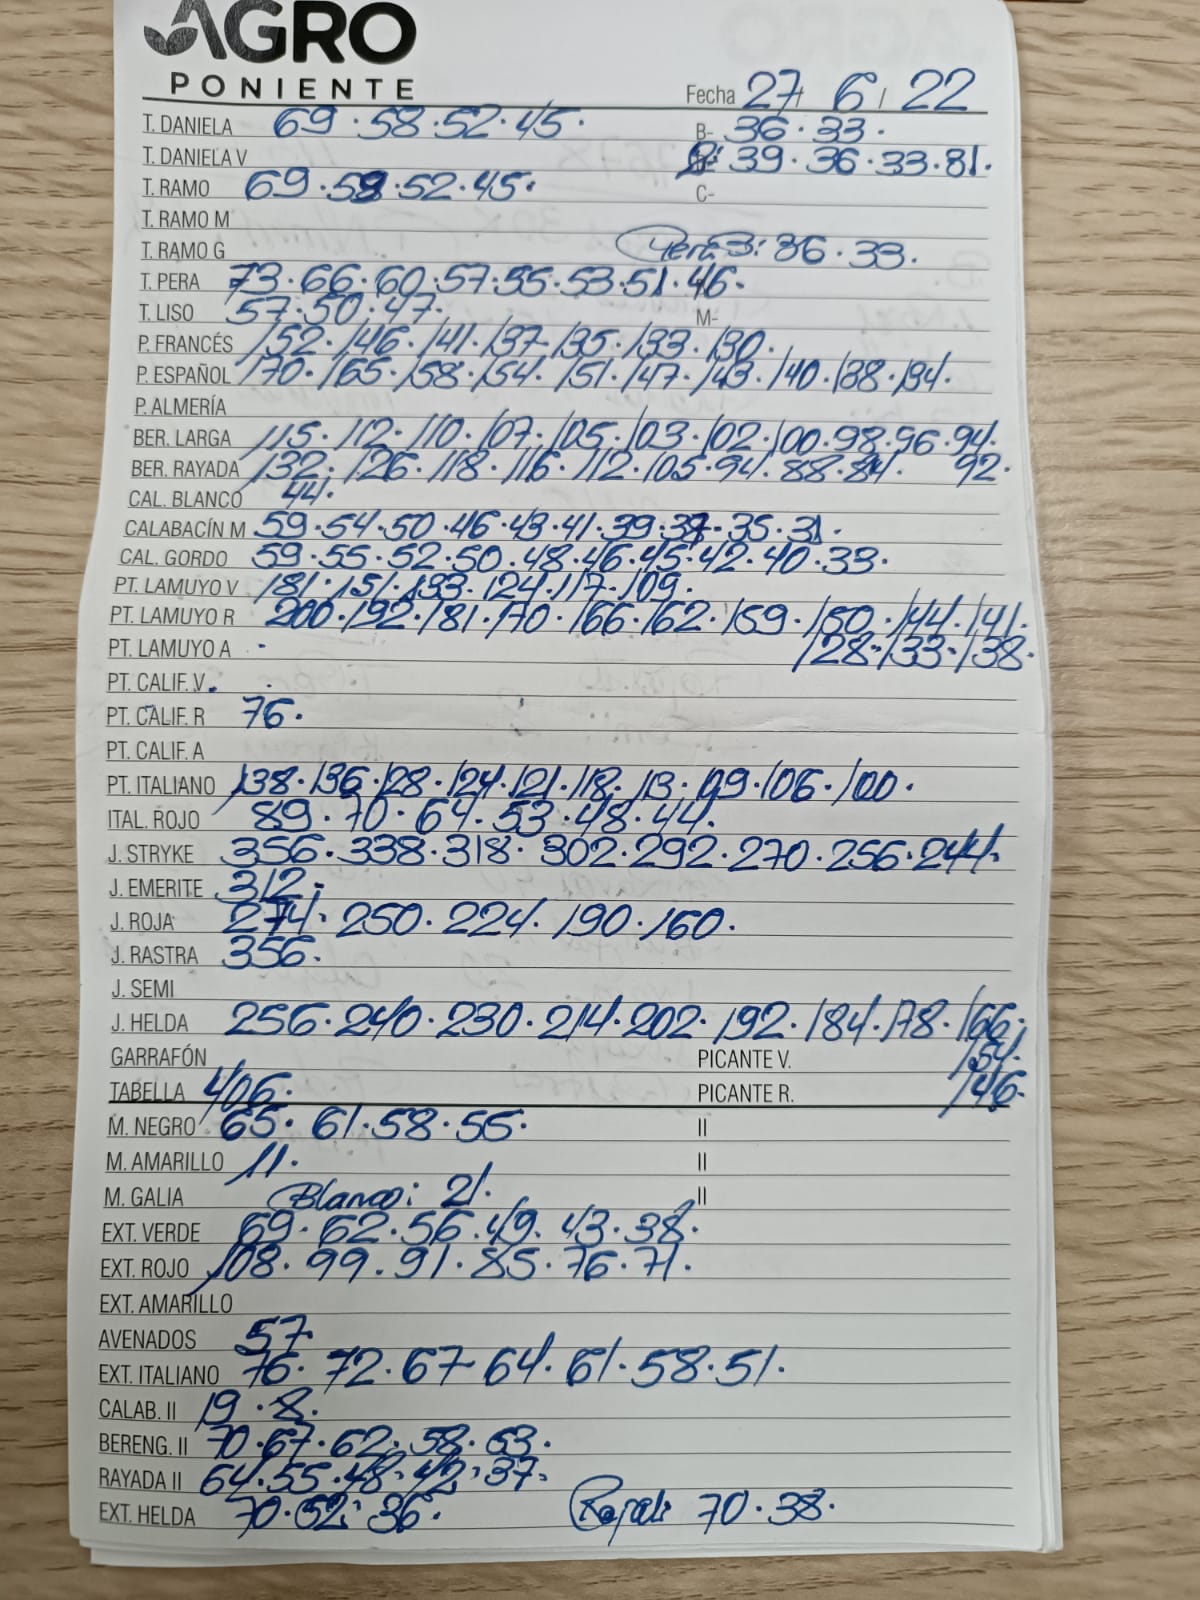 AGRO
PONIENTE
Fecha 27/ 6/ 22
T. DANIELA 69·58·52·45· B- 36·33·
T. DANIELA V 39·36·33·31·
T. RAMO 69·58·52·45· C-
T. RAMO M
T. RAMO G Pera B: 36·33·
T. PERA 73·66·60·57·55·53·51·46·
T. LISO 57·50·47· M-
P. FRANCÉS 152·146·141·137·135·133·130·
P. ESPAÑOL 170·165·158·154·151·147·143·140·138·134·
P. ALMERÍA
BER. LARGA 115·112·110·107·105·103·102·100·98·96·94·
BER. RAYADA 132·126·118·116·112·105·94·88·84· 92·
CAL. BLANCO 44·
CALABACÍN M 59·54·50·46·43·41·39·37·35·31·
CAL. GORDO 59·55·52·50·48·46·45·42·40·33·
PT. LAMUYO V 181·151·133·124·117·109·
PT. LAMUYO R 200·192·181·170·166·162·159·150·144·141·
PT. LAMUYO A 128·133·138·
PT. CALIF. V
PT. CALIF. R 76·
PT. CALIF. A
PT. ITALIANO 138·136·128·124·121·118·113·109·106·100·
ITAL. ROJO 89·70·64·53·48·44·
J. STRYKE 356·338·318·302·292·270·256·244·
J. EMERITE 312·
J. ROJA 274·250·224·190·160·
J. RASTRA 356·
J. SEMI
J. HELDA 256·240·230·214·202·192·184·178·166·
GARRAFÓN PICANTE V. 154·
TABELLA 406· PICANTE R. 146·
M. NEGRO 65·61·58·55· II
M. AMARILLO 11· II
M. GALIA Blanco: 21· II
EXT. VERDE 69·62·56·49·43·38·
EXT. ROJO 108·99·91·85·76·71·
EXT. AMARILLO
AVENADOS 57·
EXT. ITALIANO 76·72·67·64·61·58·51·
CALAB. II 19·8·
BERENG. II 70·67·62·58·53·
RAYADA II 64·55·48·42·37·
EXT. HELDA 70·52·36· 70·38·